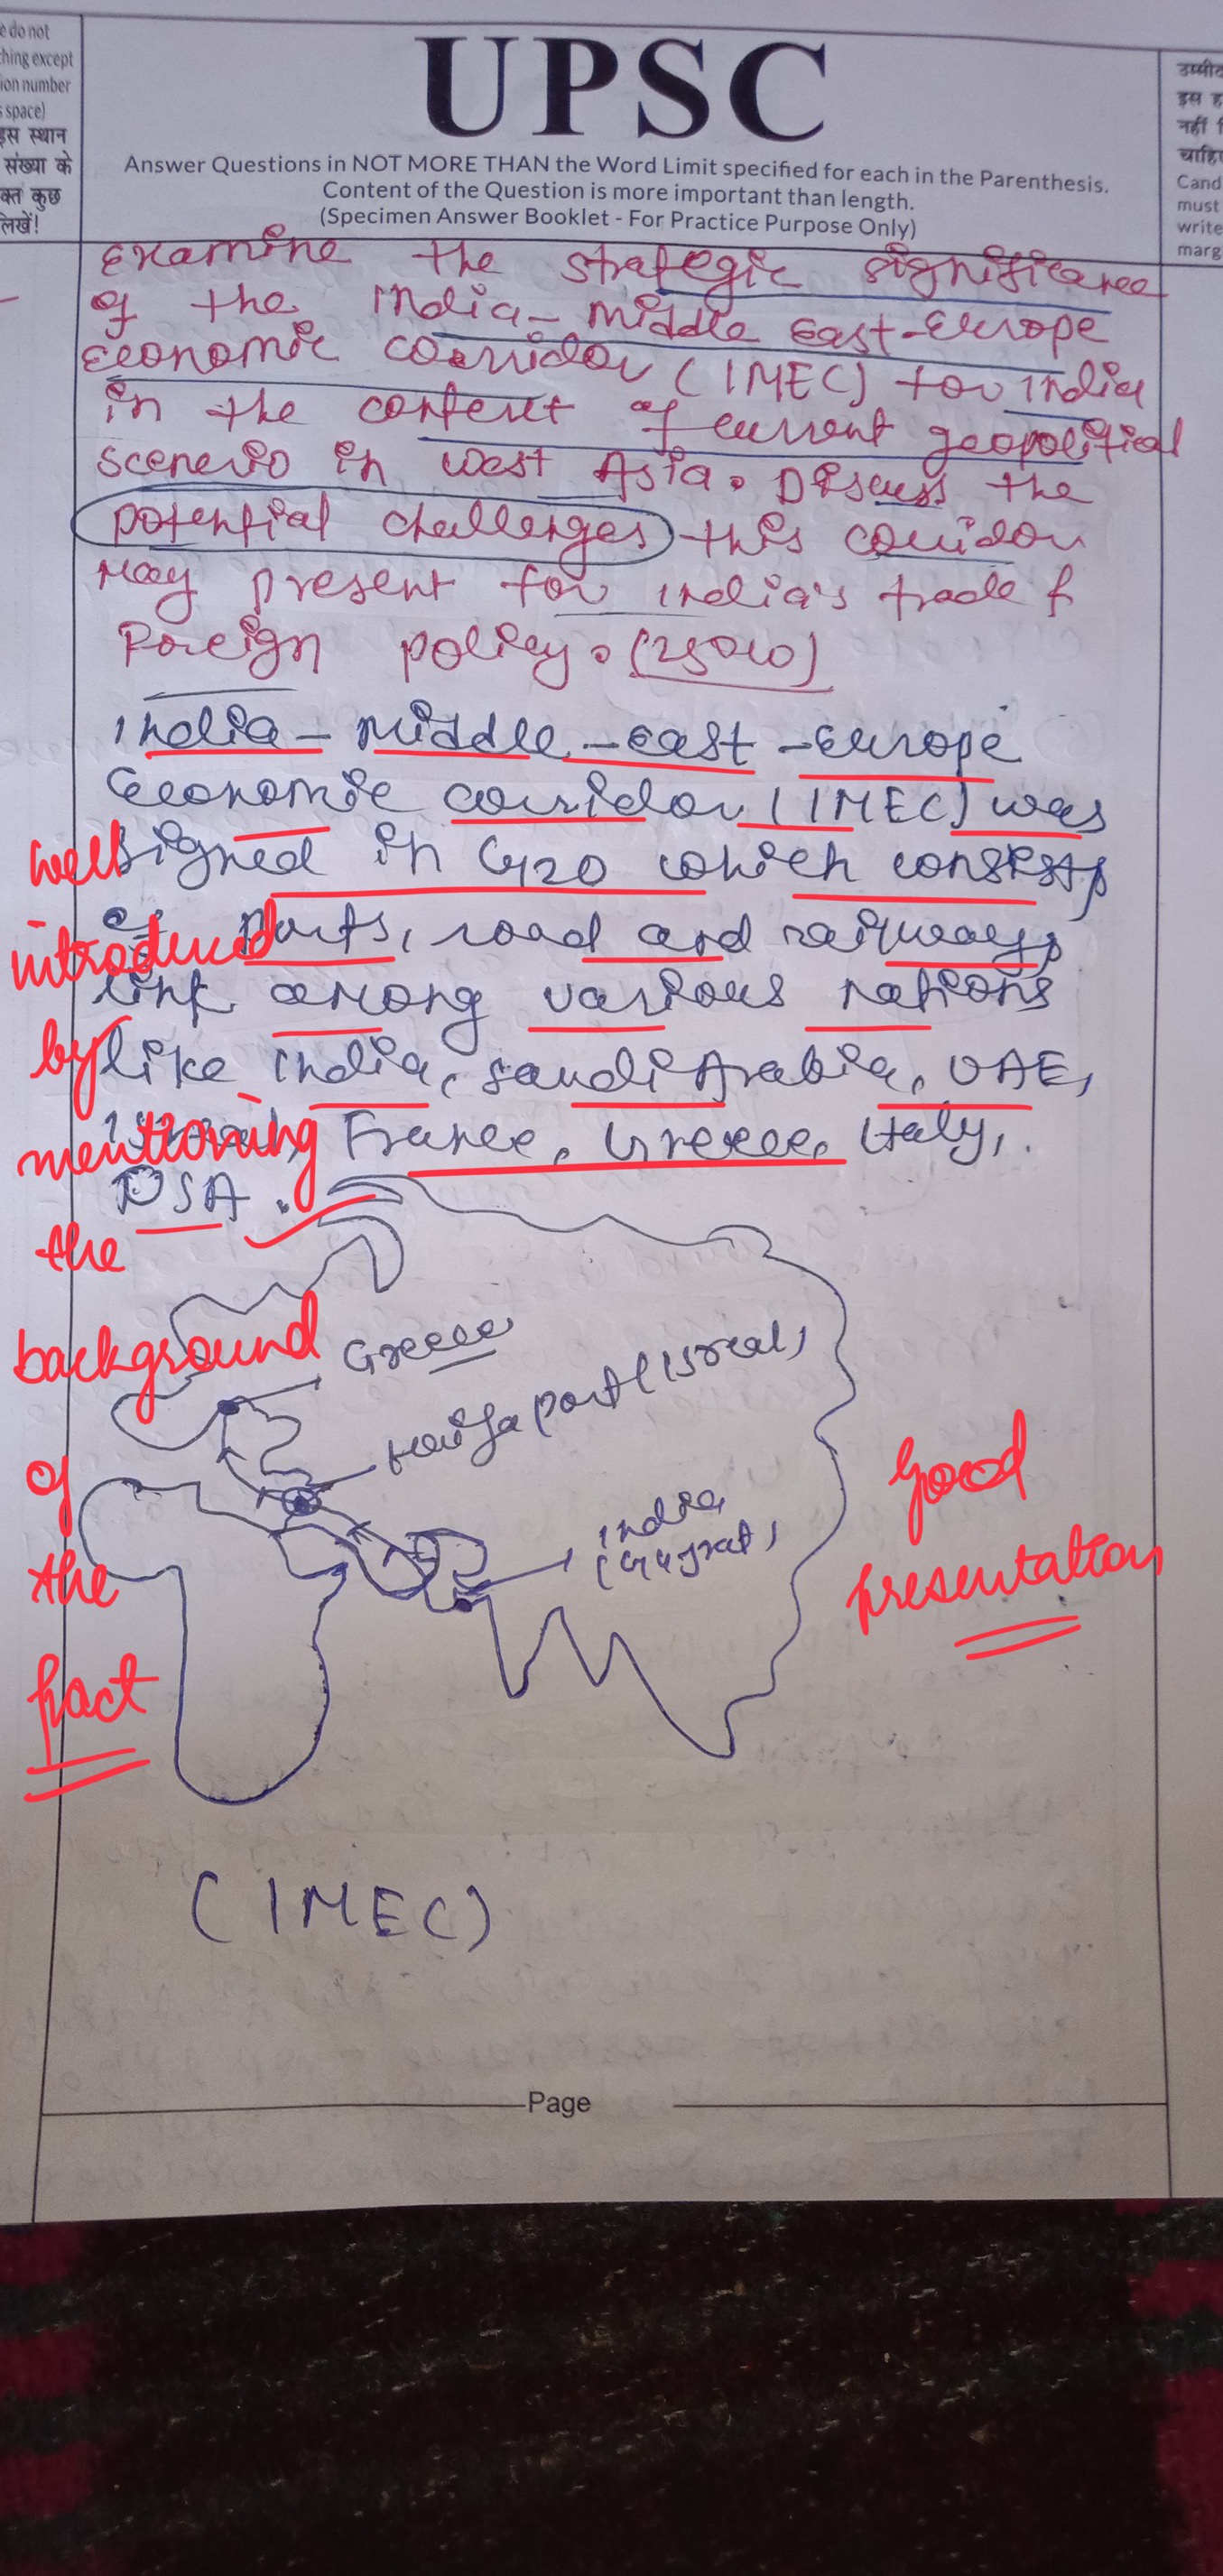 e do not
ching except
ion number
s space)
इस स्थान
संख्या के
क्त कुछ
लिखें!
UPSC
Answer Questions in NOT MORE THAN the Word Limit specified for each in the Parenthesis.
Content of the Question is more important than length.
(Specimen Answer Booklet - For Practice Purpose Only)
उम्मीद
इस ह
नहीं f
चाहि
Cand
must
write
marg
Examine the strategic significance
of the India-Middle East-Europe
Economic corridor (IMEC) for India
in the context of current geopolitical
scenerio in West Asia. Discuss the
potential challenges this corridor
may present for India's trade &
Foreign policy. (250w)
India-Middle-East-Europe
Economic corridor (IMEC) was
signed in G20 which consists
of Ports, road and railways
link among various nations
like India, Saudi Arabia, UAE,
France, Greece, Italy,
USA.
well
introduced
by
mentioning
the
background
of
the
pact
Greece
Haifa port (Isreal)
India
(Gujrat)
Good
presentation
(IMEC)
Page